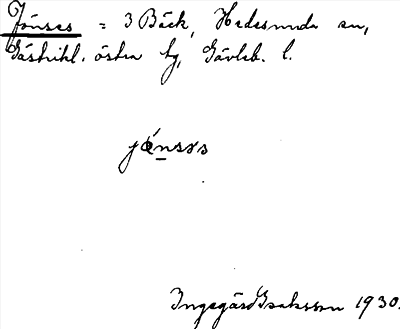 Jönses = 3 Bäck, Hedesunda sn,
Gästrikl. östra tg, Gävleb. l.
jö́nsəs
Ingegärd Isaksson 1930.